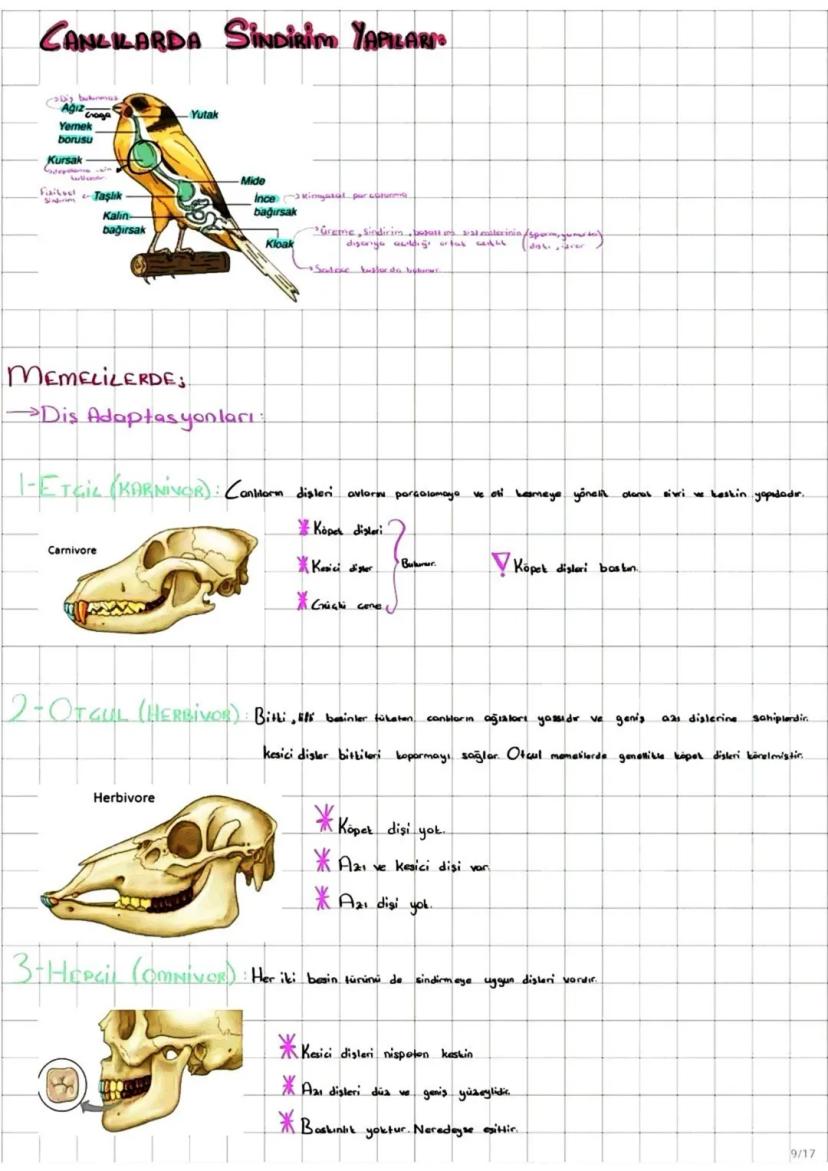 CANLILARDA SİNDİRİM YAPILARI:
→Diş bulunmaz
Ağız
Gaga
Yutak
Yemek
borusu
Kursak
Depolama için
kullanılır.
Mide
Fiziksel
Sindirim
← Taşlık
İnce
bağırsak
→Kimyasal parçalanma
Kalın
bağırsak
Kloak
→Üreme, sindirim, boşaltım sistemlerinin (sperm, yumurta)
dışarıya açıldığı ortak açıklık (dışkı, idrar)
→Sadece kuşlarda bulunur.
MEMELİLERDE;
→Diş Adaptasyonları:
1-ETÇİL (KARNİVOR): Canlıların dişleri avlarını parçalamaya ve eti kesmeye yönelik olarak sivri ve keskin yapıdadır.
Carnivore
* Köpek dişleri
* Kesici dişler
* Güçlü çene
Bulunur.
Köpek dişleri baskın.
2-OTÇUL (HERBİVOR): Bitki, lifli besinler tüketen canlıların ağızları yassıdır ve geniş azı dişlerine sahiplerdir.
Kesici dişler bitkileri koparmayı sağlar. Otçul memelilerde genellikle köpek dişleri körelmiştir.
Herbivore
* Köpek dişi yok.
* Azı ve kesici dişi var.
* Azı dişi yok.
3-HEPÇİL (OMNİVOR): Her iki besin türünü de sindirmeye uygun dişleri vardır.
* Kesici dişleri nispeten keskin
* Azı dişleri düz ve geniş yüzeylidir.
* Baskınlık yoktur. Neredeyse eşittir.
9/17